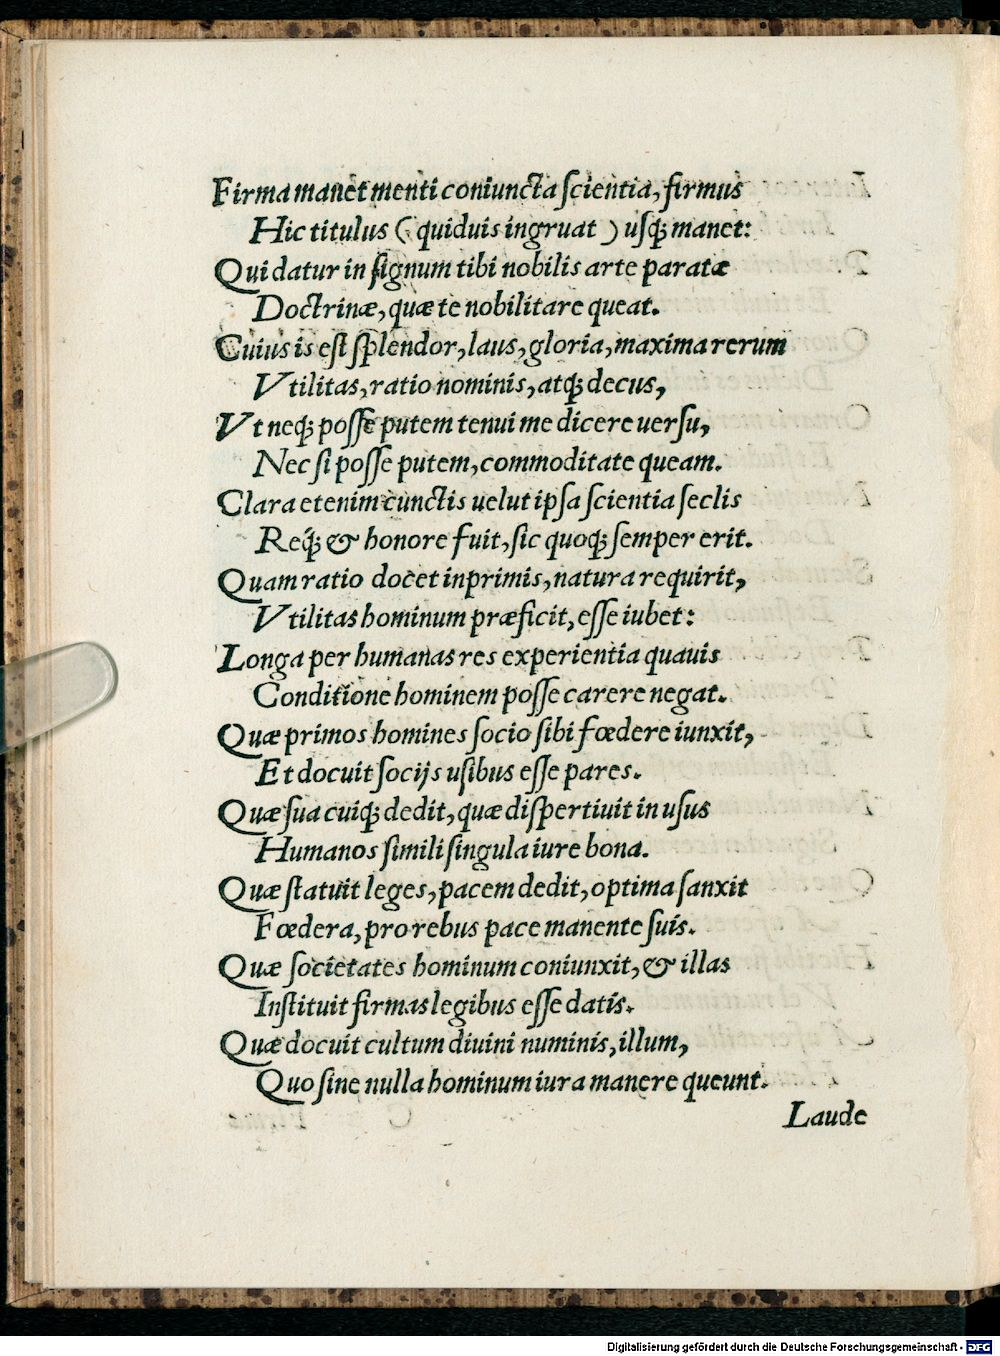 Firma manet menti coniuncta scientia, firmus
Hic titulus (quiduis ingruat) usq; manet:
Qui datur in signum tibi nobilis arte paratæ
Doctrinæ, quæ te nobilitare queat.
Cuius is est splendor, laus, gloria, maxima rerum
Vtilitas, ratio nominis, atq; decus,
Vt neq; posse putem tenui me dicere uersu,
Nec si posse putem, commoditate queam.
Clara etenim cunctis uelut ipsa scientia seclis
Req; & honore fuit, sic quoq; semper erit.
Quam ratio docet inprimis, natura requirit,
Vtilitas hominum præficit, esse iubet:
Longa per humanas res experientia quauis
Conditione hominem posse carere negat.
Quæ primos homines socio sibi fœdere iunxit,
Et docuit socijs usibus esse pares.
Quæ sua cuiq; dedit, quæ dispertiuit in usus
Humanos simili singula iure bona.
Quæ statuit leges, pacem dedit, optima sanxit
Fœdera, pro rebus pace manente suis.
Quæ societates hominum coniunxit, & illas
Instituit firmas legibus esse datis.
Quæ docuit cultum diuini numinis, illum,
Quo sine nulla hominum iura manere queunt.
Laude
Digitalisierung gefördert durch die Deutsche Forschungsgemeinschaft - DFG